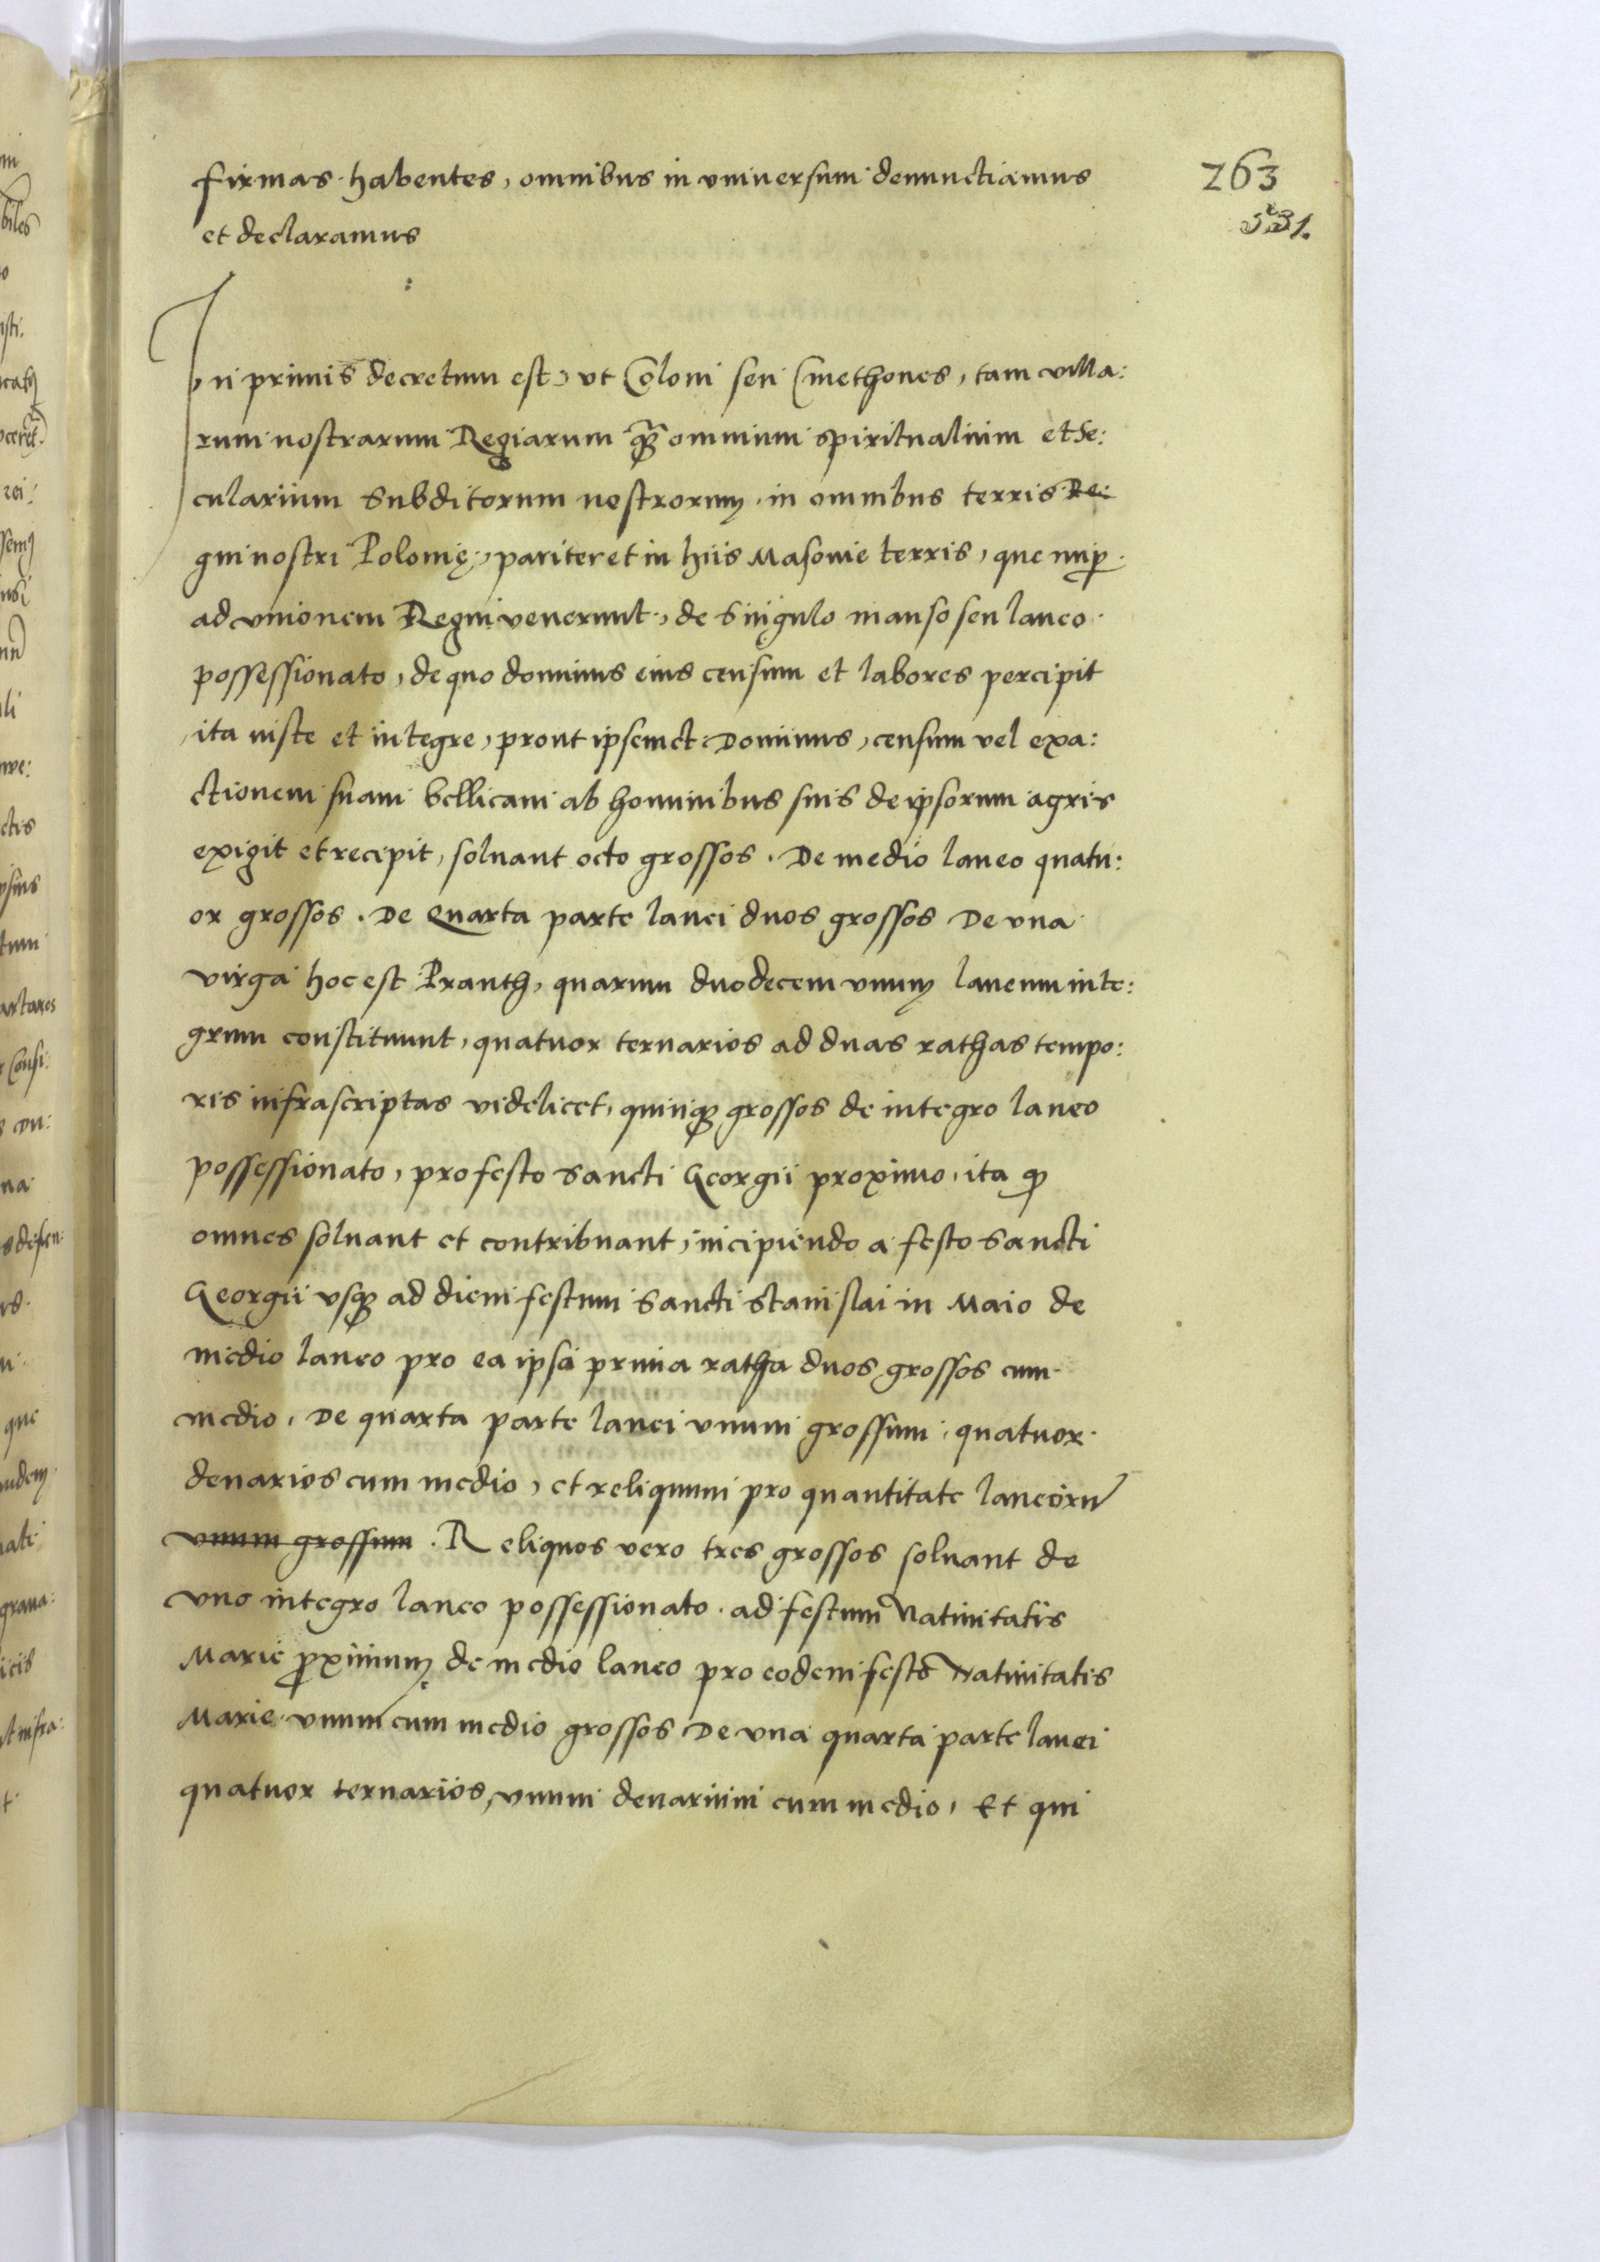 263
531.
firmas habentes, omnibus in universum denunctiamus
et declaramus
In primis decretum est, ut Coloni seu Cmethones, tam villa:
rum nostrarum Regiarum qʒ omnium spiritualium et Se:
cularium Subditorum nostrorum, in omnibus terris Re:
gni nostri Polonię, pariter et in hiis Masovie terris, que nup
ad unionem Regni venerunt, de Singulo manso seu laneo
possessionato, de quo dominus eius censum et labores percipit
ita iuste et integre, prout ipsemet Dominus, censum vel exa:
ctionem suam bellicam ab hominibus suis de ipsorum agris
exigit et recipit, solvant octo grossos. De medio laneo quatu:
or grossos. De Quarta parte lanei duos grossos De una
virga hoc est Pranth, quarum duodecem unum laneum inte:
grum constituunt, quatuor ternarios ad duas rathas tempo:
ris infrascriptas videlicet, quinqʒ grossos de integro laneo
possessionato, pro festo Sancti Georgii proximo, ita qʒ
omnes solvant et contribuant, incipiendo a festo Sancti
Georgii usqʒ ad diem festum Sancti Stanislai in Maio de
medio laneo pro ea ipsa prima ratha duos grossos cum
medio, De quarta parte lanei unum grossum, quatuor
denarios cum medio, et reliquum pro quantitate laneoru
unum grossum. Reliquos vero tres grossos solvant de
uno integro laneo possessionato ad festum Nativitatis
Marie pximum de medio laneo pro eodem festo Nativitatis
Marie unum cum medio grossos De una quarta parte lanei
quatuor ternarios, unum denarium cum medio, Et qui